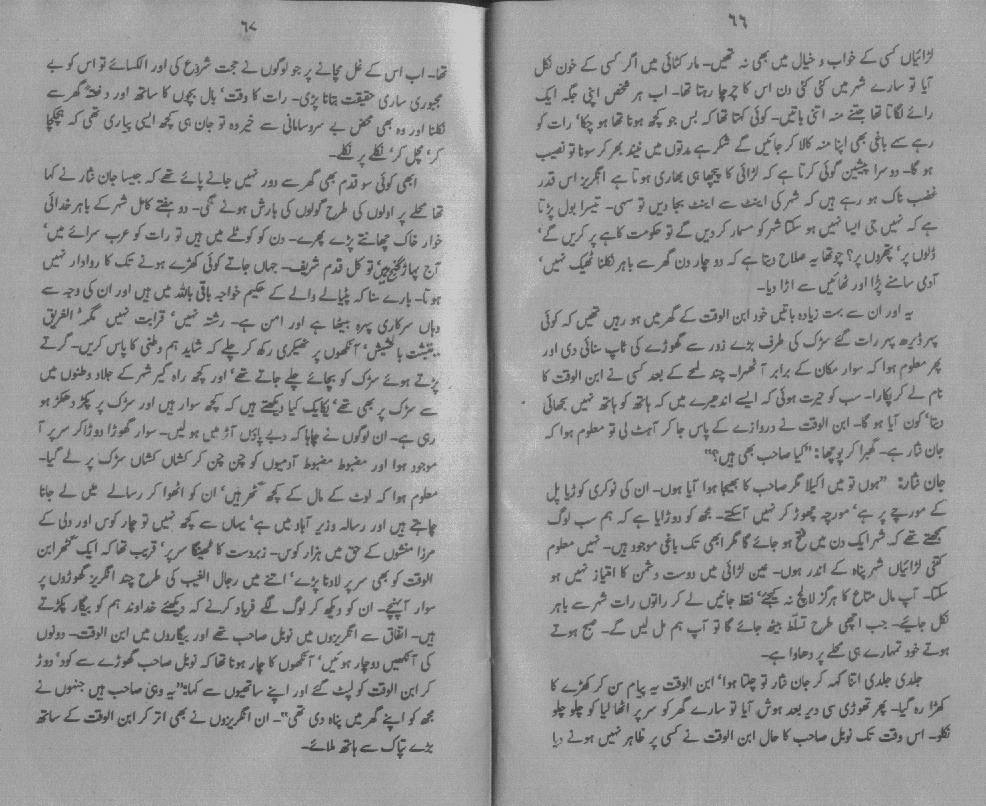 ٦٦
لڑائیاں کسی کے خواب و خیال میں بھی نہ تھیں۔ مار کٹائی میں اگر کسی کے خون نکل
آیا تو سارے شہر میں کئی کئی دن اس کا چرچا رہتا تھا۔ اب ہر شخص اپنی جگہ ایک
رائے لگاتا تھا جتنے منہ اتنی باتیں۔ کوئی کہتا تھا کہ بس جو کچھ ہونا تھا ہو چکا‘ رات کو
رہے سہے باغی بھی اپنا منہ کالا کر جائیں گے شکر ہے مدتوں میں نیند بھر کر سونا تو نصیب
ہو گا۔ دوسرا پیشین گوئی کرتا ہے کہ لڑائی کا پیچھا ہی بھاری ہوتا ہے انگریز اس قدر
غضب ناک ہو رہے ہیں کہ شہر کی اینٹ سے اینٹ بجا دیں تو سہی۔ تیسرا بول پڑتا
ہے کہ نہیں جی ایسا نہیں ہو سکتا شہر کو مسمار کر دیں گے تو حکومت کاہے پر کریں گے‘
ڈلوں پر‘ پتھروں پر؟ چوتھا یہ صلاح دیتا ہے کہ دو چار دن گھر سے باہر نکلنا ٹھیک نہیں‘
آدمی سامنے پڑا اور ٹھائیں سے اڑا دیا۔
یہ اور ان سے بہت زیادہ باتیں خود ابن الوقت کے گھر میں ہو رہیں تھیں کہ کوئی
پہر ڈیڑھ پہر رات گئے سڑک کی طرف بڑے زور سے گھوڑے کی ٹاپ سنائی دی اور
پھر معلوم ہوا کہ سوار مکان کے برابر آ ٹھہرا۔ چند لمحے کے بعد کسی نے ابن الوقت کا
نام لے کر پکارا۔ سب کو حیرت ہوئی کہ ایسے اندھیرے میں کہ ہاتھ کو ہاتھ نہیں بجھائی
دیتا‘ کون آیا ہو گا۔ ابن الوقت نے دروازے کے پاس جا کر آہٹ لی تو معلوم ہوا کہ
جان نثار ہے۔ گھبرا کر پوچھا: ”کیا صاحب بھی ہیں؟“
جان نثار: ”ہوں تو میں اکیلا مگر صاحب کا بھیجا ہوا آیا ہوں۔ ان کی نوکری کوڑیا پل
کے مورچے پر ہے‘ مورچہ چھوڑ کر نہیں آ سکتے۔ مجھ کو دوڑایا ہے کہ ہم سب لوگ
سمجھتے تھے کہ شہر ایک دن میں فتح ہو جائے گا مگر ابھی تک باغی موجود ہیں۔ نہیں معلوم
کتنی لڑائیاں شہر پناہ کے اندر ہوں۔ عین لڑائی میں دوست دشمن کا امتیاز نہیں ہو
سکتا۔ آپ مال متاع کا ہرگز لالچ نہ کیجئے‘ فقط جانیں لے کر راتوں رات شہر سے باہر
نکل جائیے۔ جب اچھی طرح تسلّط بیٹھ جائے گا تو آپ ہم مل لیں گے۔ صبح ہوتے
ہوتے خود تمہارے ہی محلے پر دھاوا ہے۔
جلدی جلدی اتنا کہہ کر جان نثار تو چلتا ہوا‘ ابن الوقت یہ پیام سن کر کھڑے کا
کھڑا رہ گیا۔ پھر تھوڑی سی دیر بعد ہوش آیا تو سارے گھر کو سر پر اٹھا لیا کو چلو چلو
نکلو۔ اس وقت تک نوبل صاحب کا حال ابن الوقت نے کسی پر ظاہر نہیں ہونے دیا
٦٧
تھا۔ اب اس کے غل مچانے پر جو لوگوں نے حجت شروع کی اور الکسائے تو اس کو بے
مجبوری ساری حقیقت بتانا پڑی۔ رات کا وقت‘ بال بچوں کا ساتھ اور دفعتہً گھر سے
نکلنا اور وہ بھی محض بے سروسامانی سے خیر وہ تو جان ہی کچھ ایسی پیاری تھی کہ ہچکچا
کر‘ مچل کر‘ نکلے پر نکلے۔
ابھی کوئی سو قدم بھی گھر سے دور نہیں جانے پائے تھے کہ جیسا جان نثار نے کہا
تھا محلے پر اولوں کی طرح گولوں کی بارش ہونے لگی۔ دو ہفتے کامل شہر کے باہر خدائی
خوار خاک چھانتے پڑے پھرے۔ دن کو کوٹلے میں ہیں تو رات کو عرب سرائے میں‘
آج پہاڑ گنج ہیں‘ تو کل قدم شریف۔ جہاں جاتے کوئی کھڑے ہونے تک کا روادار نہیں
ہوتا۔ بارے سنا کہ پٹیالے والے کے حکیم خواجہ باقی باللہ میں ہیں اور ان کی وجہ سے
وہاں سرکاری پہرہ بیٹھا ہے اور امن ہے۔ رشتہ نہیں‘ قرابت نہیں مگر الغریق
یتشبث بالحشیش‘ آنکھوں پر ٹھیکری رکھ کر چلے کہ شاید ہم وطنی کا پاس کریں۔ گرتے
پڑتے ہوئے سڑک کو بچائے چلے جاتے تھے‘ اور کچھ راہ گیر شہر کے جلاو وطنوں میں
سے سڑک پر بھی تھے‘ یکایک کیا دیکھتے ہیں کہ کچھ سوار ہیں اور سڑک پر پکڑ دھکڑ ہو
رہی ہے۔ ان لوگوں نے چاہا کہ دبے پاؤں آڑ میں ہو لیں۔ سوار گھوڑا دوڑا کر سر پر آ
موجود ہوا اور مضبوط مضبوط آدمیوں کو چن چن کر کشاں کشاں سڑک پر لے گیا۔
معلوم ہوا کہ لوٹ کے مال کے کچھ گٹھر ہیں‘ ان کو اٹھوا کر رسالے میں لے جانا
چاہتے ہیں اور رسالہ وزیر آباد میں ہے‘ یہاں سے کچھ نہیں تو چار کوس اور دلی کے
مرزا منشوں کے حق میں ہزار کوس۔ زبردست کا ٹھینگا سر پر‘ قریب تھا کہ ایک گٹھر ابن
الوقت کو بھی سر پر لادنا پڑے‘ اتنے میں رجال الغیب کی طرح چند انگریز گھوڑوں پر
سوار آ پہنچے۔ ان کو دیکھ کر لوگ لگے فریاد کرنے کہ دیکھئے خداوند ہم کو بیگار پکڑتے
ہیں۔ اتفاق سے انگریزوں میں نوبل صاحب تھے اور بیگاروں میں ابن الوقت۔ دونوں
کی آنکھیں دوچار ہوئیں‘ آنکھوں کا چار ہونا تھا کہ نوبل صاحب گھوڑے سے کود‘ دوڑ
کر ابن الوقت کو لپٹ گئے اور اپنے ساتھیوں سے کہا: ”یہ وہی صاحب ہیں جنہوں نے
مجھ کو اپنے گھر میں پناہ دی تھی“۔ ان انگریزوں نے بھی اتر کر ابن الوقت کے ساتھ
بڑے تپاک سے ہاتھ ملائے۔